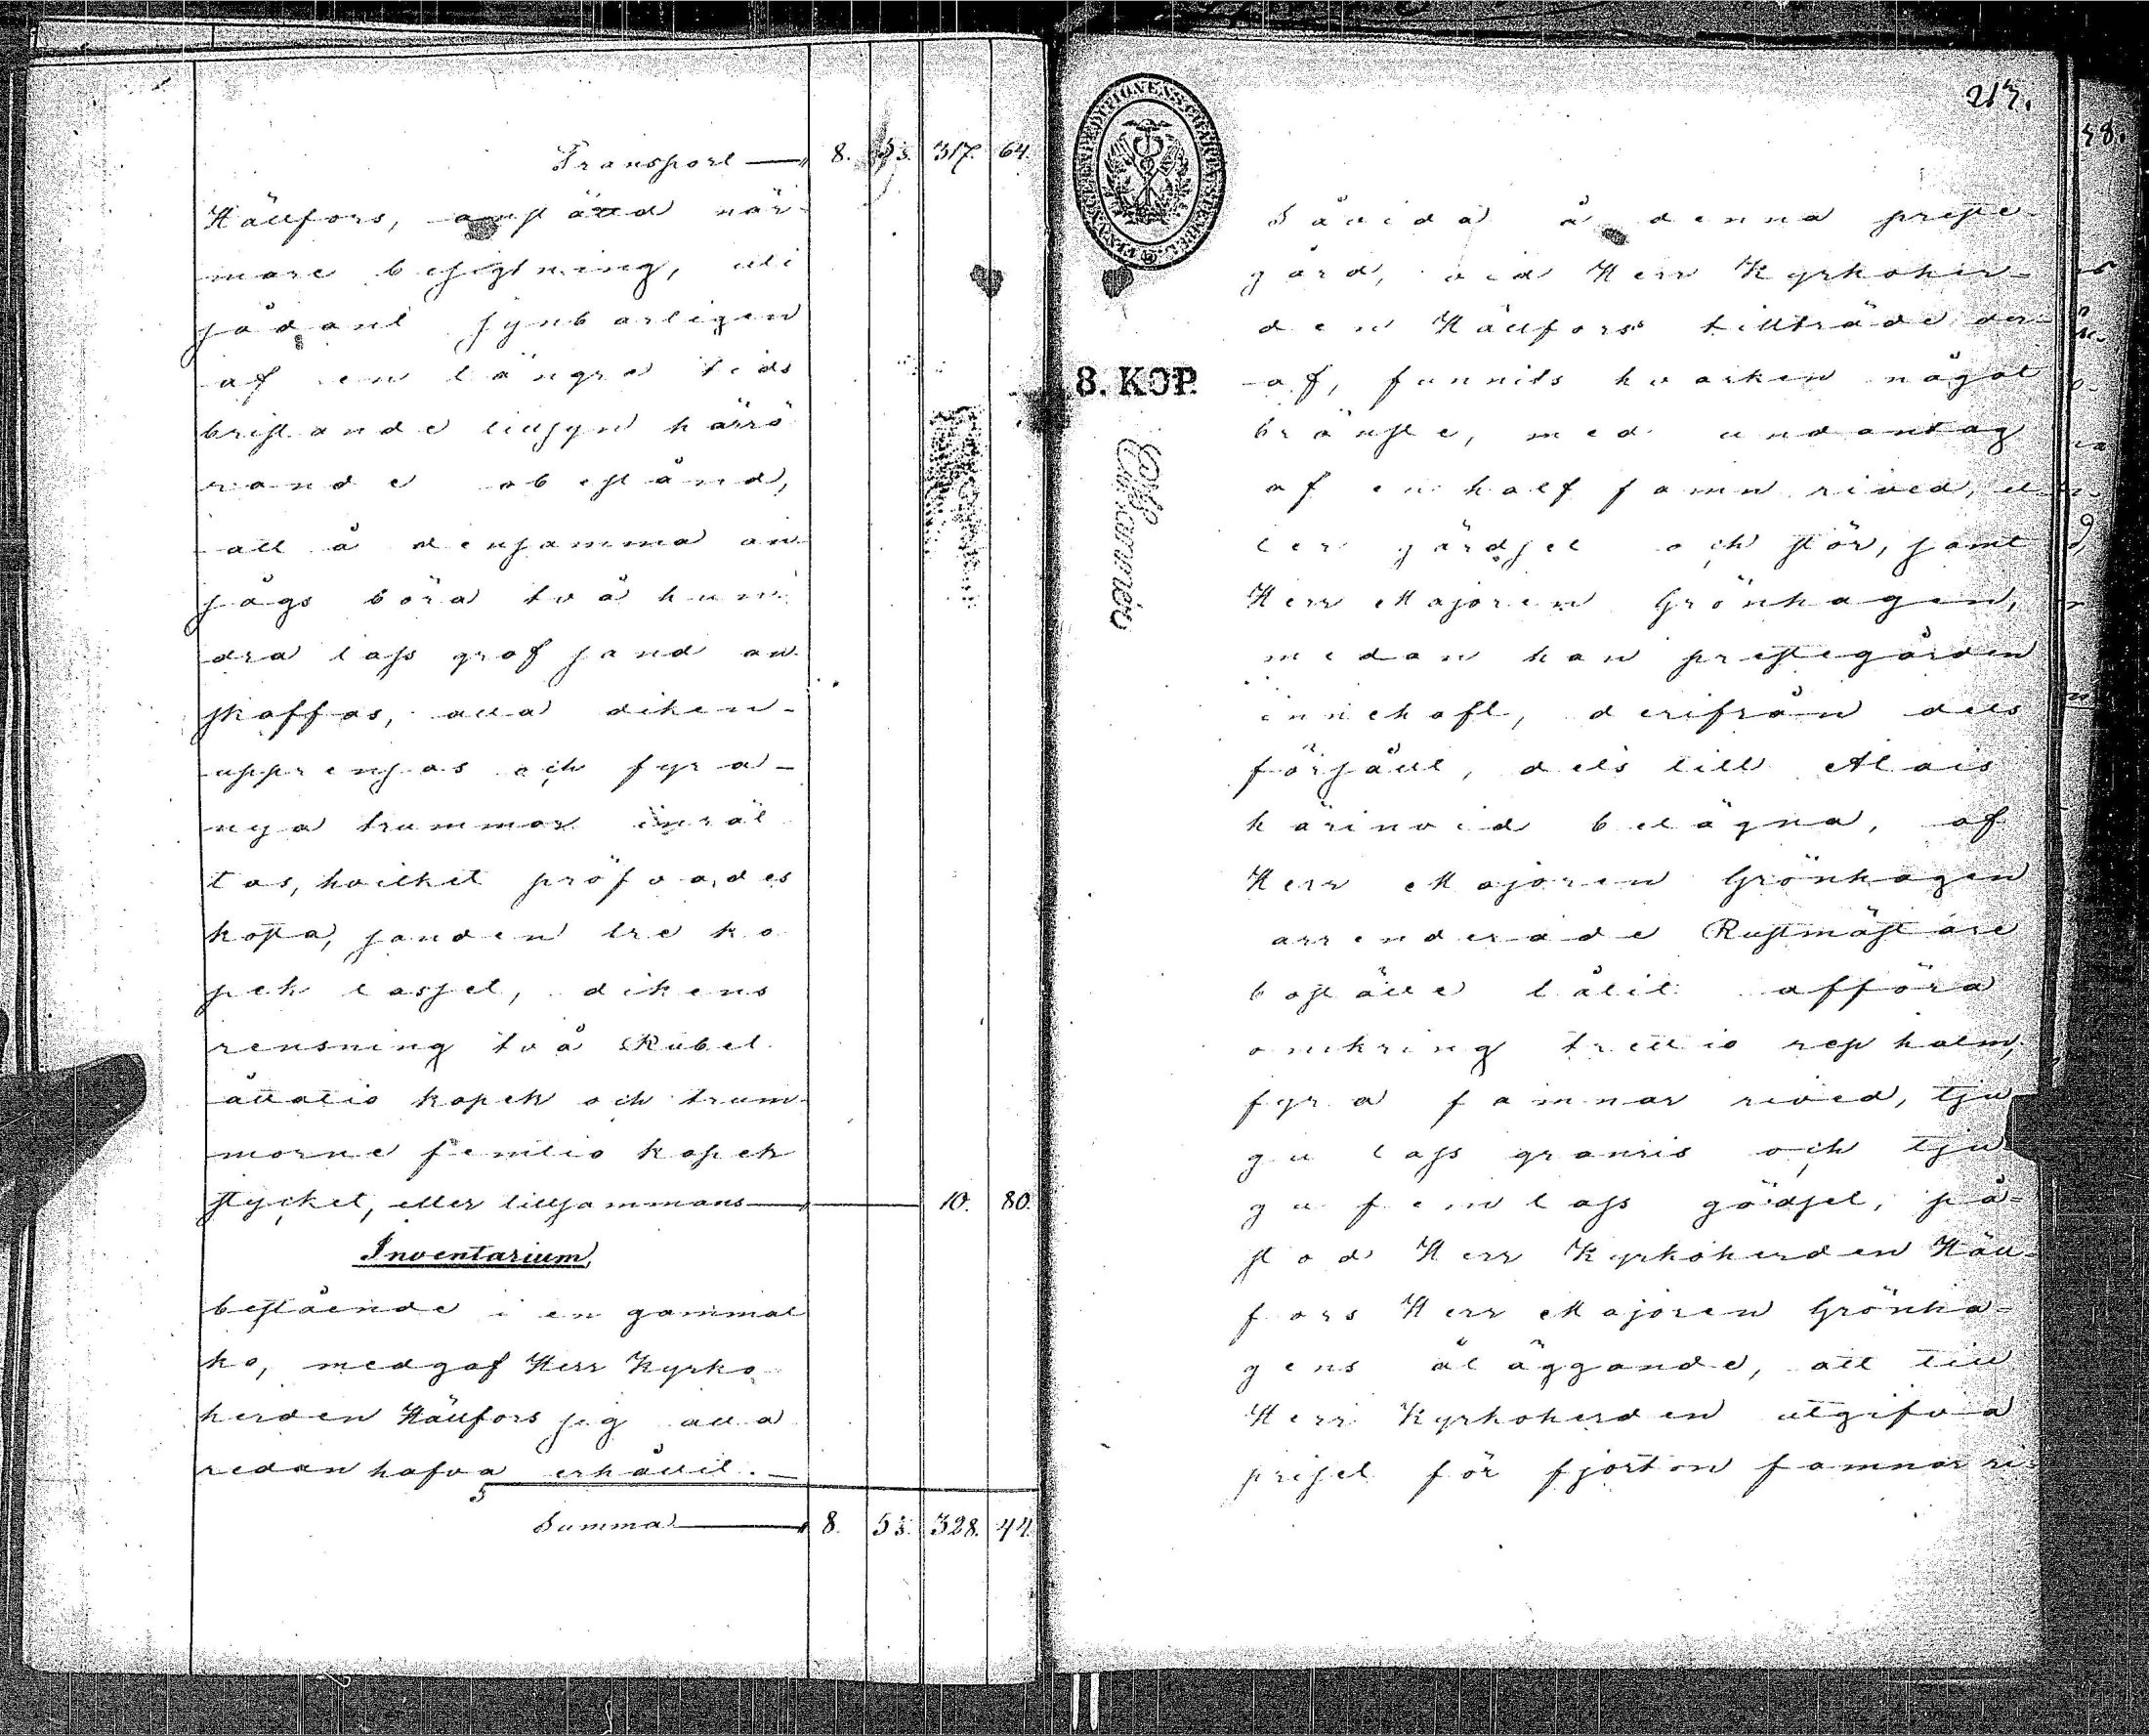 Transport — 8. 53. 317. 64.
Hällfors, anstäld när-
mare besigtning, uti
sådant synbarligen
af en längre tids
bristande tillsyn härrö-
rande obestånd,
att å densamma an-
sågs böra två hun-
dra lass grof sand an-
skaffas, alla diken
upprensas och fyra
nya trummor inrät-
tas, hvilket pröfvades
kosta, sanden tre ko-
pek lasset, dikens
rensning två Rubel
åttatio kopek och trum-
morne femtio kopek
stycket, eller tillsammans — 10. 80.
Inventarium,
bestående i en gammal
ko, medgaf Herr Kyrko-
herden Hällfors sig alla-
redan hafva erhållit. —
Summa — 8. 53. 328. 44.
217.
8. KOP.
Såvida å denna preste-
gård, vid Herr Kyrkoher-
den Hällfors tillträde der-
af, funnits hvarken något
bränsle, med undantag
af en half famn rived, el-
ler gärdsel och stör, samt
Herr Majoren Grönhagen,
medan han prestegården
innehaft, derifrån dels
försålt, dels till Alais
härinvid belägna, af
Herr Majoren Grönhagen
arrenderade Rustmästare
boställe låtit afföra
omkring trettio rep halm,
fyra famnar rived, tju-
gu lass granris och tju-
gu fem lass gödsel, på-
stod Herr Kyrkoherden Häll-
fors Herr Majoren Grönha-
gens åläggande, att till
Herr Kyrkoherden utgifva
priset för fjorton famnar ri-